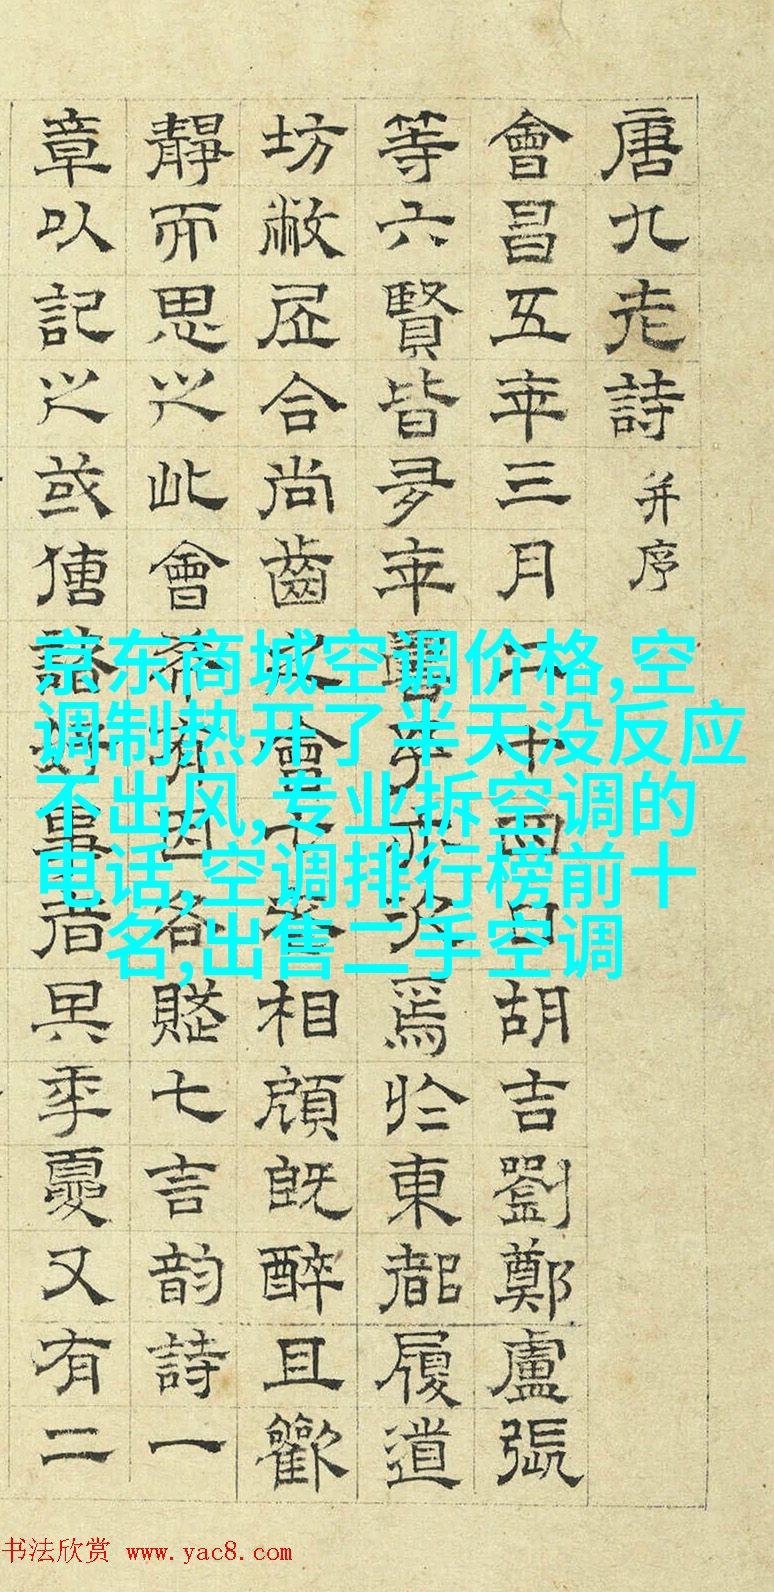 唐九老詩 并序
會昌五年三月二十四日胡吉劉鄭盧張
等六賢皆多年壽予亦次焉於東都履道
坊敝居合尚齒之會七老相顧既醉且歡
靜而思之此會希有因各賦七言韵詩一
章以記之或傳諸好事者其年夏又有二
京东商城空调价格,空
调制热开了半天没反应
不出风,专业拆空调的
电话,空调排行榜前十
名,出售二手空调
书法欣赏 www.yac8.com